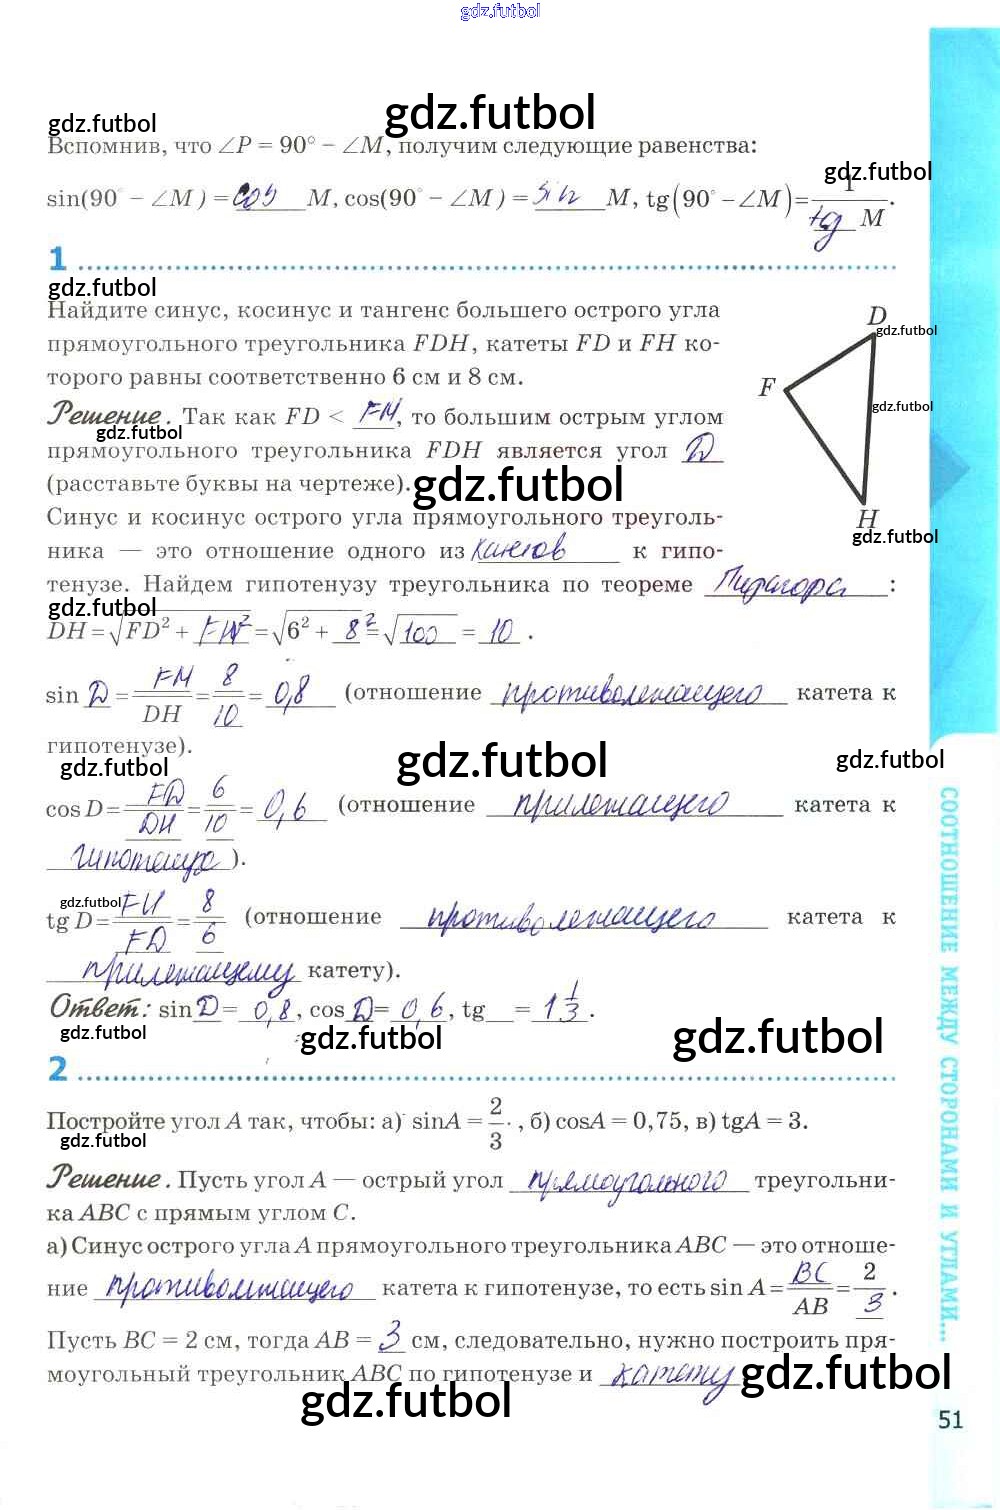 gdz.futbol
gdz.futbol
gdz.futbol
Вспомнив, что ∠P = 90° − ∠M, получим следующие равенства:
gdz.futbol
sin(90° − ∠M) = cos M, cos(90° − ∠M) = sin M, tg(90° − ∠M) = 1 / tg M.
1
gdz.futbol
Найдите синус, косинус и тангенс большего острого угла
прямоугольного треугольника FDH, катеты FD и FH ко-
торого равны соответственно 6 см и 8 см.
D
gdz.futbol
F
gdz.futbol
H
gdz.futbol
Решение. Так как FD < FH, то большим острым углом
gdz.futbol
прямоугольного треугольника FDH является угол D
(расставьте буквы на чертеже).
gdz.futbol
Синус и косинус острого угла прямоугольного треуголь-
ника — это отношение одного из катетов к гипо-
тенузе. Найдем гипотенузу треугольника по теореме Пифагора :
gdz.futbol
DH = √FD² + FH² = √6² + 8² = √100 = 10 .
sin D = FH / DH = 8 / 10 = 0,8 (отношение противолежащего катета к
гипотенузе).
gdz.futbol
gdz.futbol
gdz.futbol
cos D = FD / DH = 6 / 10 = 0,6 (отношение прилежащего катета к
гипотенузе ).
gdz.futbol
tg D = FH / FD = 8 / 6 (отношение противолежащего катета к
прилежащему катету).
Ответ: sin D = 0,8, cos D = 0,6, tg __ = 1 1/3.
gdz.futbol
gdz.futbol
gdz.futbol
2
Постройте угол A так, чтобы: а) sinA = 2/3, б) cosA = 0,75, в) tgA = 3.
gdz.futbol
Решение. Пусть угол A — острый угол прямоугольного треугольни-
ка ABC с прямым углом C.
а) Синус острого угла A прямоугольного треугольника ABC — это отноше-
ние противолежащего катета к гипотенузе, то есть sin A = BC / AB = 2 / 3 .
Пусть BC = 2 см, тогда AB = 3 см, следовательно, нужно построить пря-
моугольный треугольник ABC по гипотенузе и катету
gdz.futbol
gdz.futbol
СООТНОШЕНИЕ МЕЖДУ СТОРОНАМИ И УГЛАМИ...
51